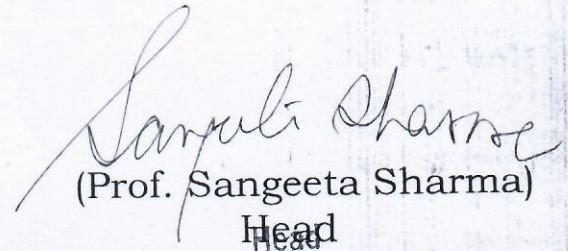 Sangeeta Sharma
(Prof. Sangeeta Sharma)
Head
Head